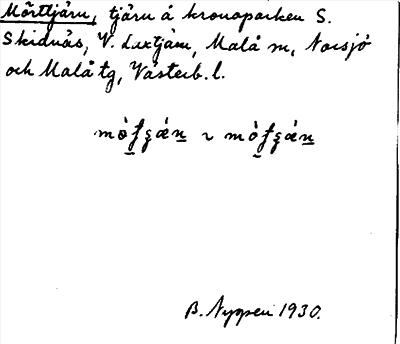 Mörttjärn, tjärn å kronoparken S.
Skidnäs, V. Luxtjärn, Malå sn, Norsjö
och Malå tg, Västerb. l.
B. Nygren 1930.